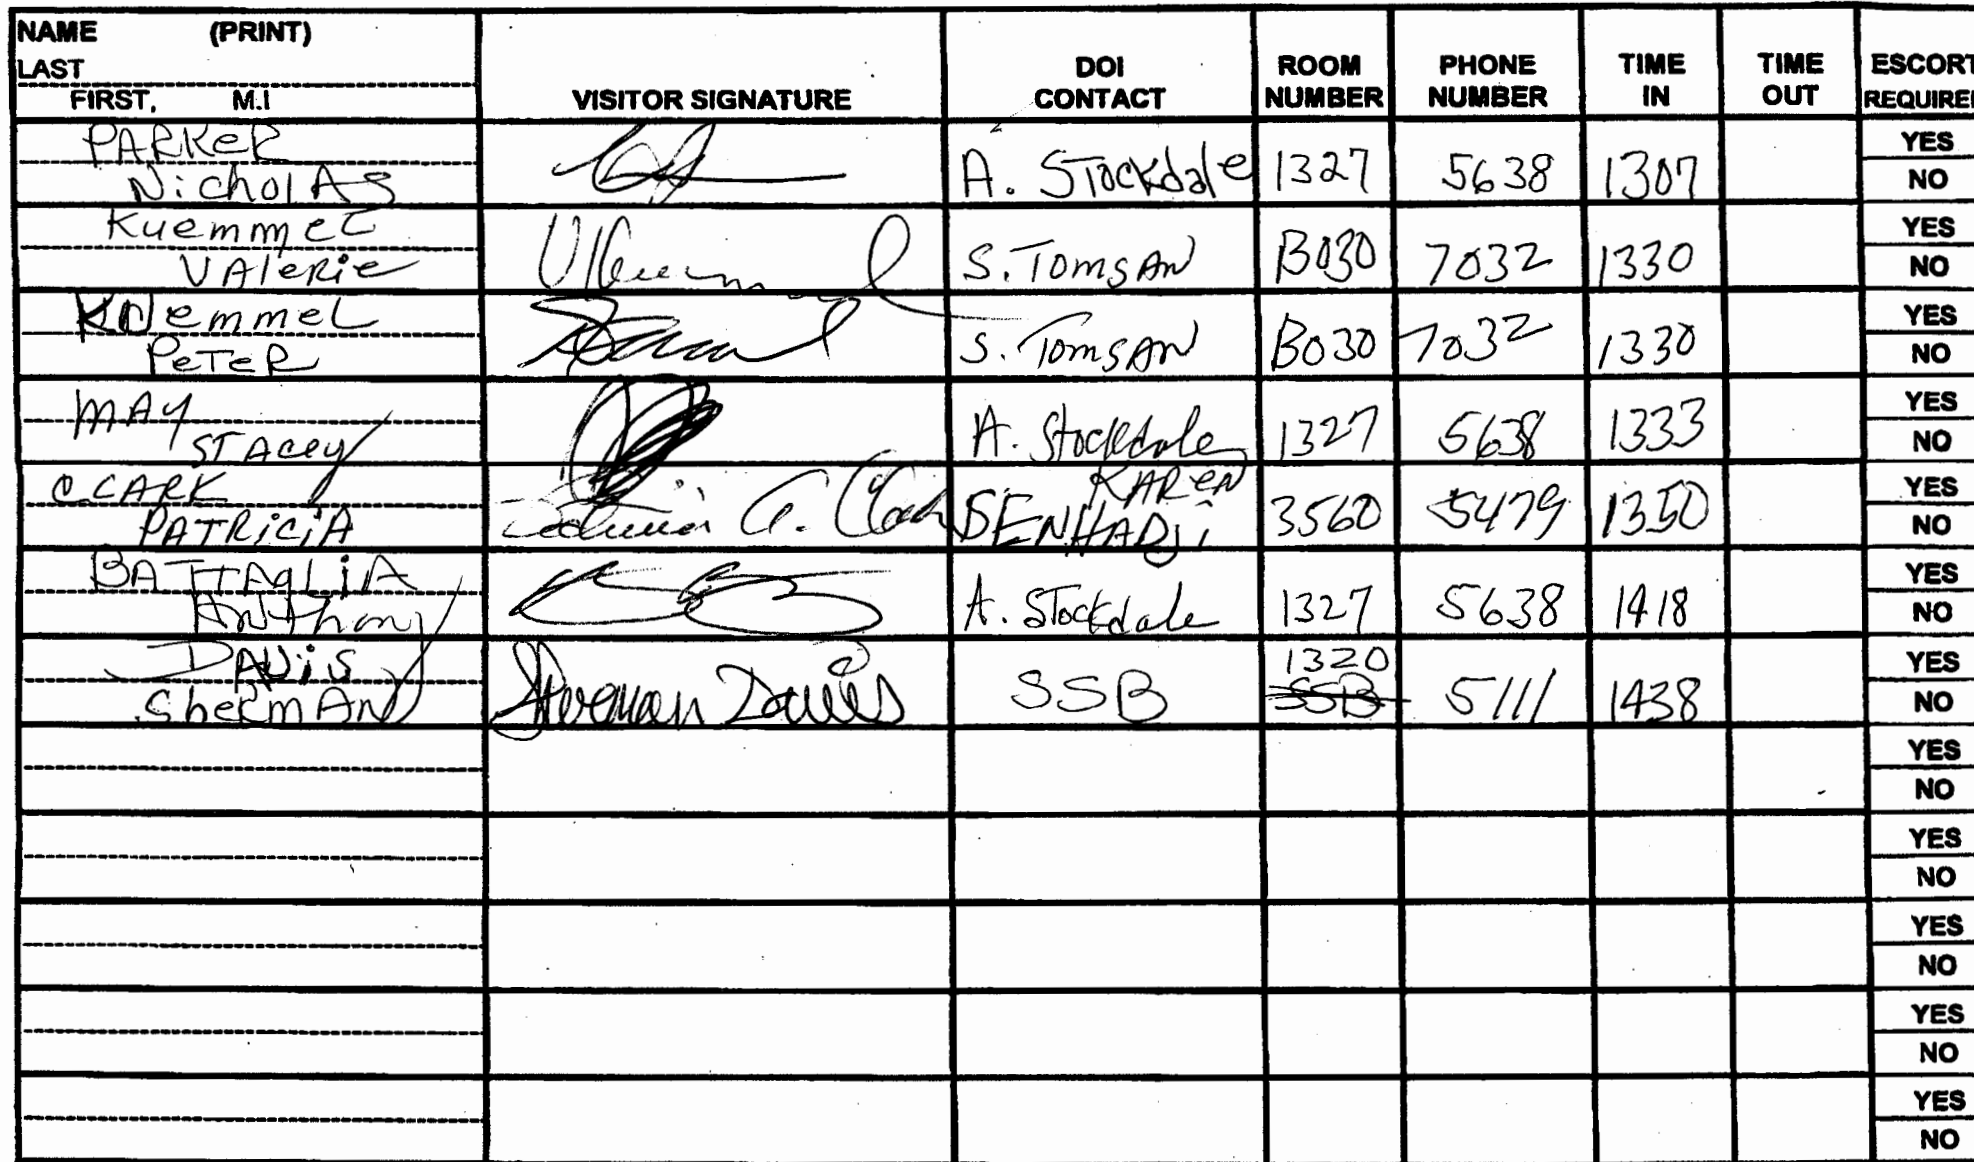 NAME (PRINT)
LAST
FIRST, M.I
VISITOR SIGNATURE
DOI CONTACT
ROOM NUMBER
PHONE NUMBER
TIME IN
TIME OUT
ESCORT REQUIRED
PARKER
Nicholas A. Stockdale 1327 5638 1307 YES NO
Kuemmel
Valerie S. Tomsan B030 7032 1330 YES NO
Kuemmel
Peter S. Tomsan B030 7032 1330 YES NO
MAY
Stacey A. Stockdale 1327 5638 1333 YES NO
CLARK
PATRICIA KAREN SENHADJI 3560 5479 1350 YES NO
BATTAGLIA
Anthony A. Stockdale 1327 5638 1418 YES NO
DAVIS
Sherman Sherman Davis SSB 1320 SSB 5111 1438 YES NO
YES
NO
YES
NO
YES
NO
YES
NO
YES
NO